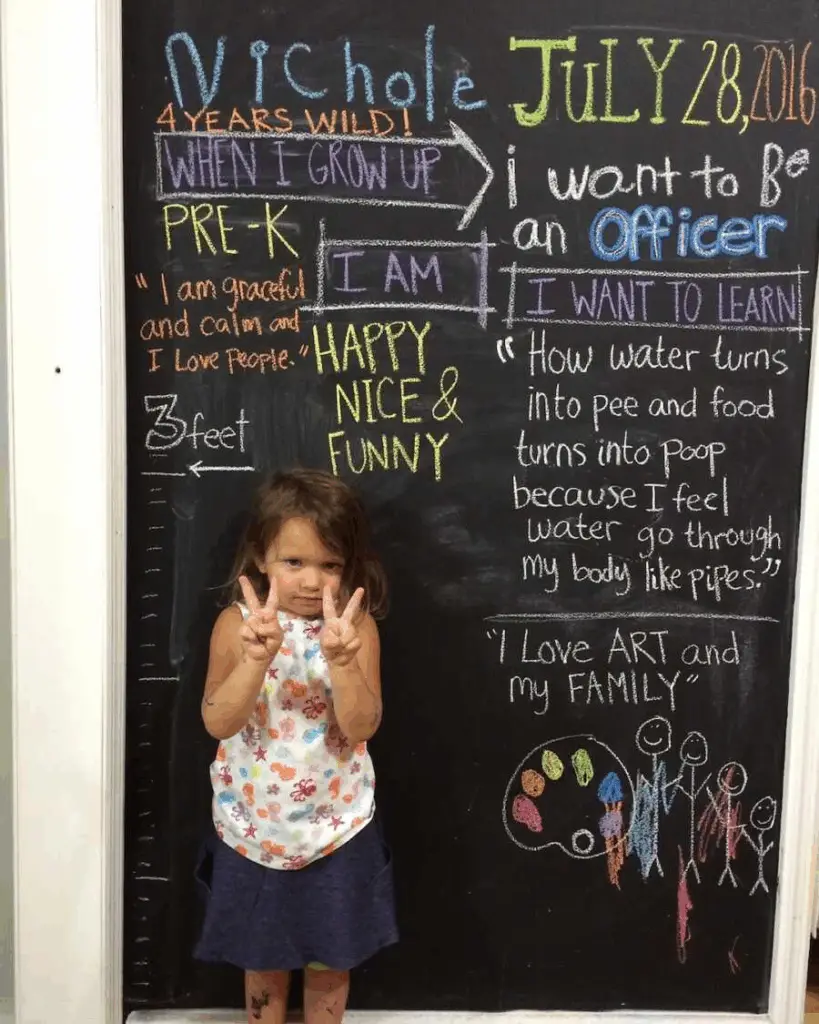 Nichole
JULY 28, 2016
4 YEARS WILD!
WHEN I GROW UP
i want to Be
an Officer
PRE-K
"I am graceful
and calm and
I Love People."
I AM
HAPPY
NICE &
FUNNY
3 feet
I WANT TO LEARN
"How water turns
into pee and food
turns into poop
because I feel
water go through
my body like pipes."
"I Love ART and
my FAMILY"